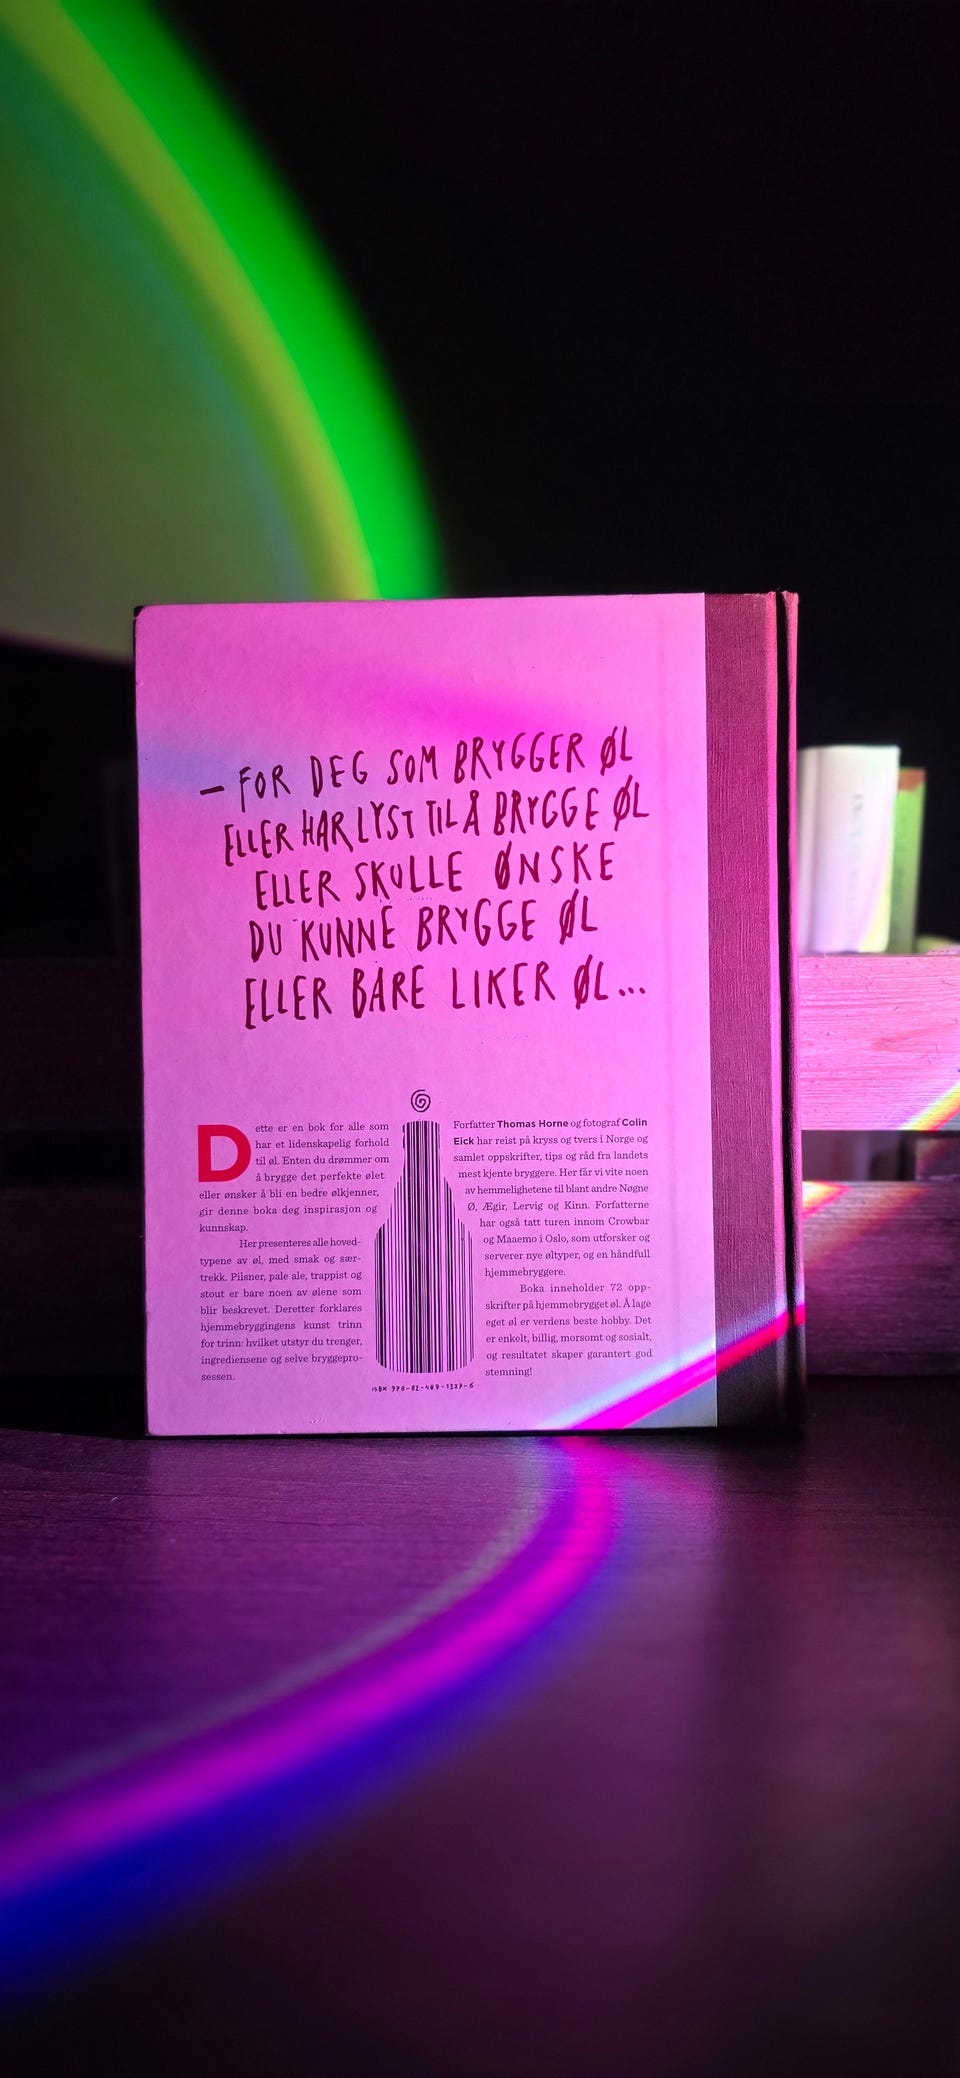 — FOR DEG SOM BRYGGER ØL
ELLER HAR LYST TIL Å BRYGGE ØL
ELLER SKULLE ØNSKE
DU KUNNE BRYGGE ØL
ELLER BARE LIKER ØL...
Dette er en bok for alle som
har et lidenskapelig forhold
til øl. Enten du drømmer om
å brygge det perfekte ølet
eller ønsker å bli en bedre ølkjenner,
gir denne boka deg inspirasjon og
kunnskap.
Her presenteres alle hoved-
typene av øl, med smak og sær-
trekk. Pilsner, pale ale, trappist og
stout er bare noen av ølene som
blir beskrevet. Deretter forklares
hjemmebryggingens kunst trinn
for trinn: hvilket utstyr du trenger,
ingrediensene og selve bryggepro-
sessen.
Forfatter Thomas Horne og fotograf Colin
Eick har reist på kryss og tvers i Norge og
samlet oppskrifter, tips og råd fra landets
mest kjente bryggere. Her får vi vite noen
av hemmelighetene til blant andre Nøgne
Ø, Ægir, Lervig og Kinn. Forfatterne
har også tatt turen innom Crowbar
og Maaemo i Oslo, som utforsker og
serverer nye øltyper, og en håndfull
hjemmebryggere.
Boka inneholder 72 opp-
skrifter på hjemmebrygget øl. Å lage
eget øl er verdens beste hobby. Det
er enkelt, billig, morsomt og sosialt,
og resultatet skaper garantert god
stemning!
ISBN 978-82-489-1327-6